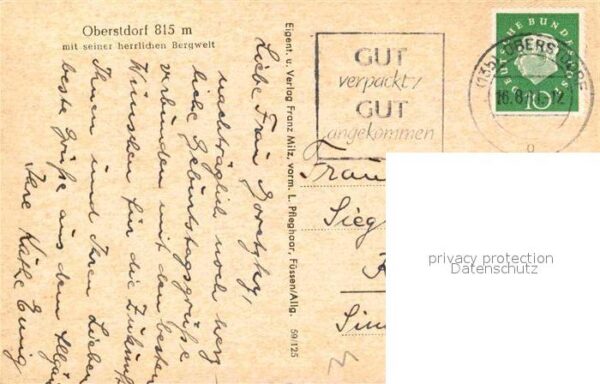 Oberstdorf 815 m
mit seiner herrlichen Bergwelt
Liebe Frau
nachträglich noch herz-
liche Geburtstagsgrüße
verbunden mit den besten
Wünschen für die Zukunft
Ihnen und Ihren Lieben
beste Grüße aus dem Allgäu
Ihre Käthe
Eigent. u. Verlag Franz Milz, vorm. L. Pfleghaar, Füssen/Allg. 59/125
GUT
verpackt,
GUT
angekommen
DEUTSCHE BUNDESPOST
10
(13b) OBERSTDORF
Frau
Sieg
privacy protection
Datenschutz